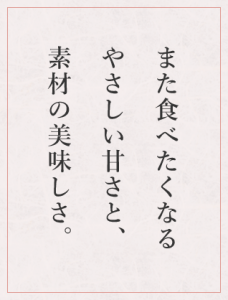 また食べたくなる
やさしい甘さと、
素材の美味しさ。